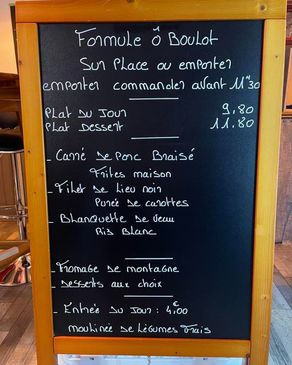 Formule Ô Boulot
Sur Place ou emporter
emporter commander avant 11h30
Plat Du Jour 9,80
Plat Dessert 11.80
- Carré De Porc Braisé
Frites maison
- Filet de Lieu noir
Purée de carottes
- Blanquette de Veau
Riz Blanc
- Fromage de montagne
- Desserts aux choix
- Entrée Du Jour : 4,00€
moulinée de Légumes Frais